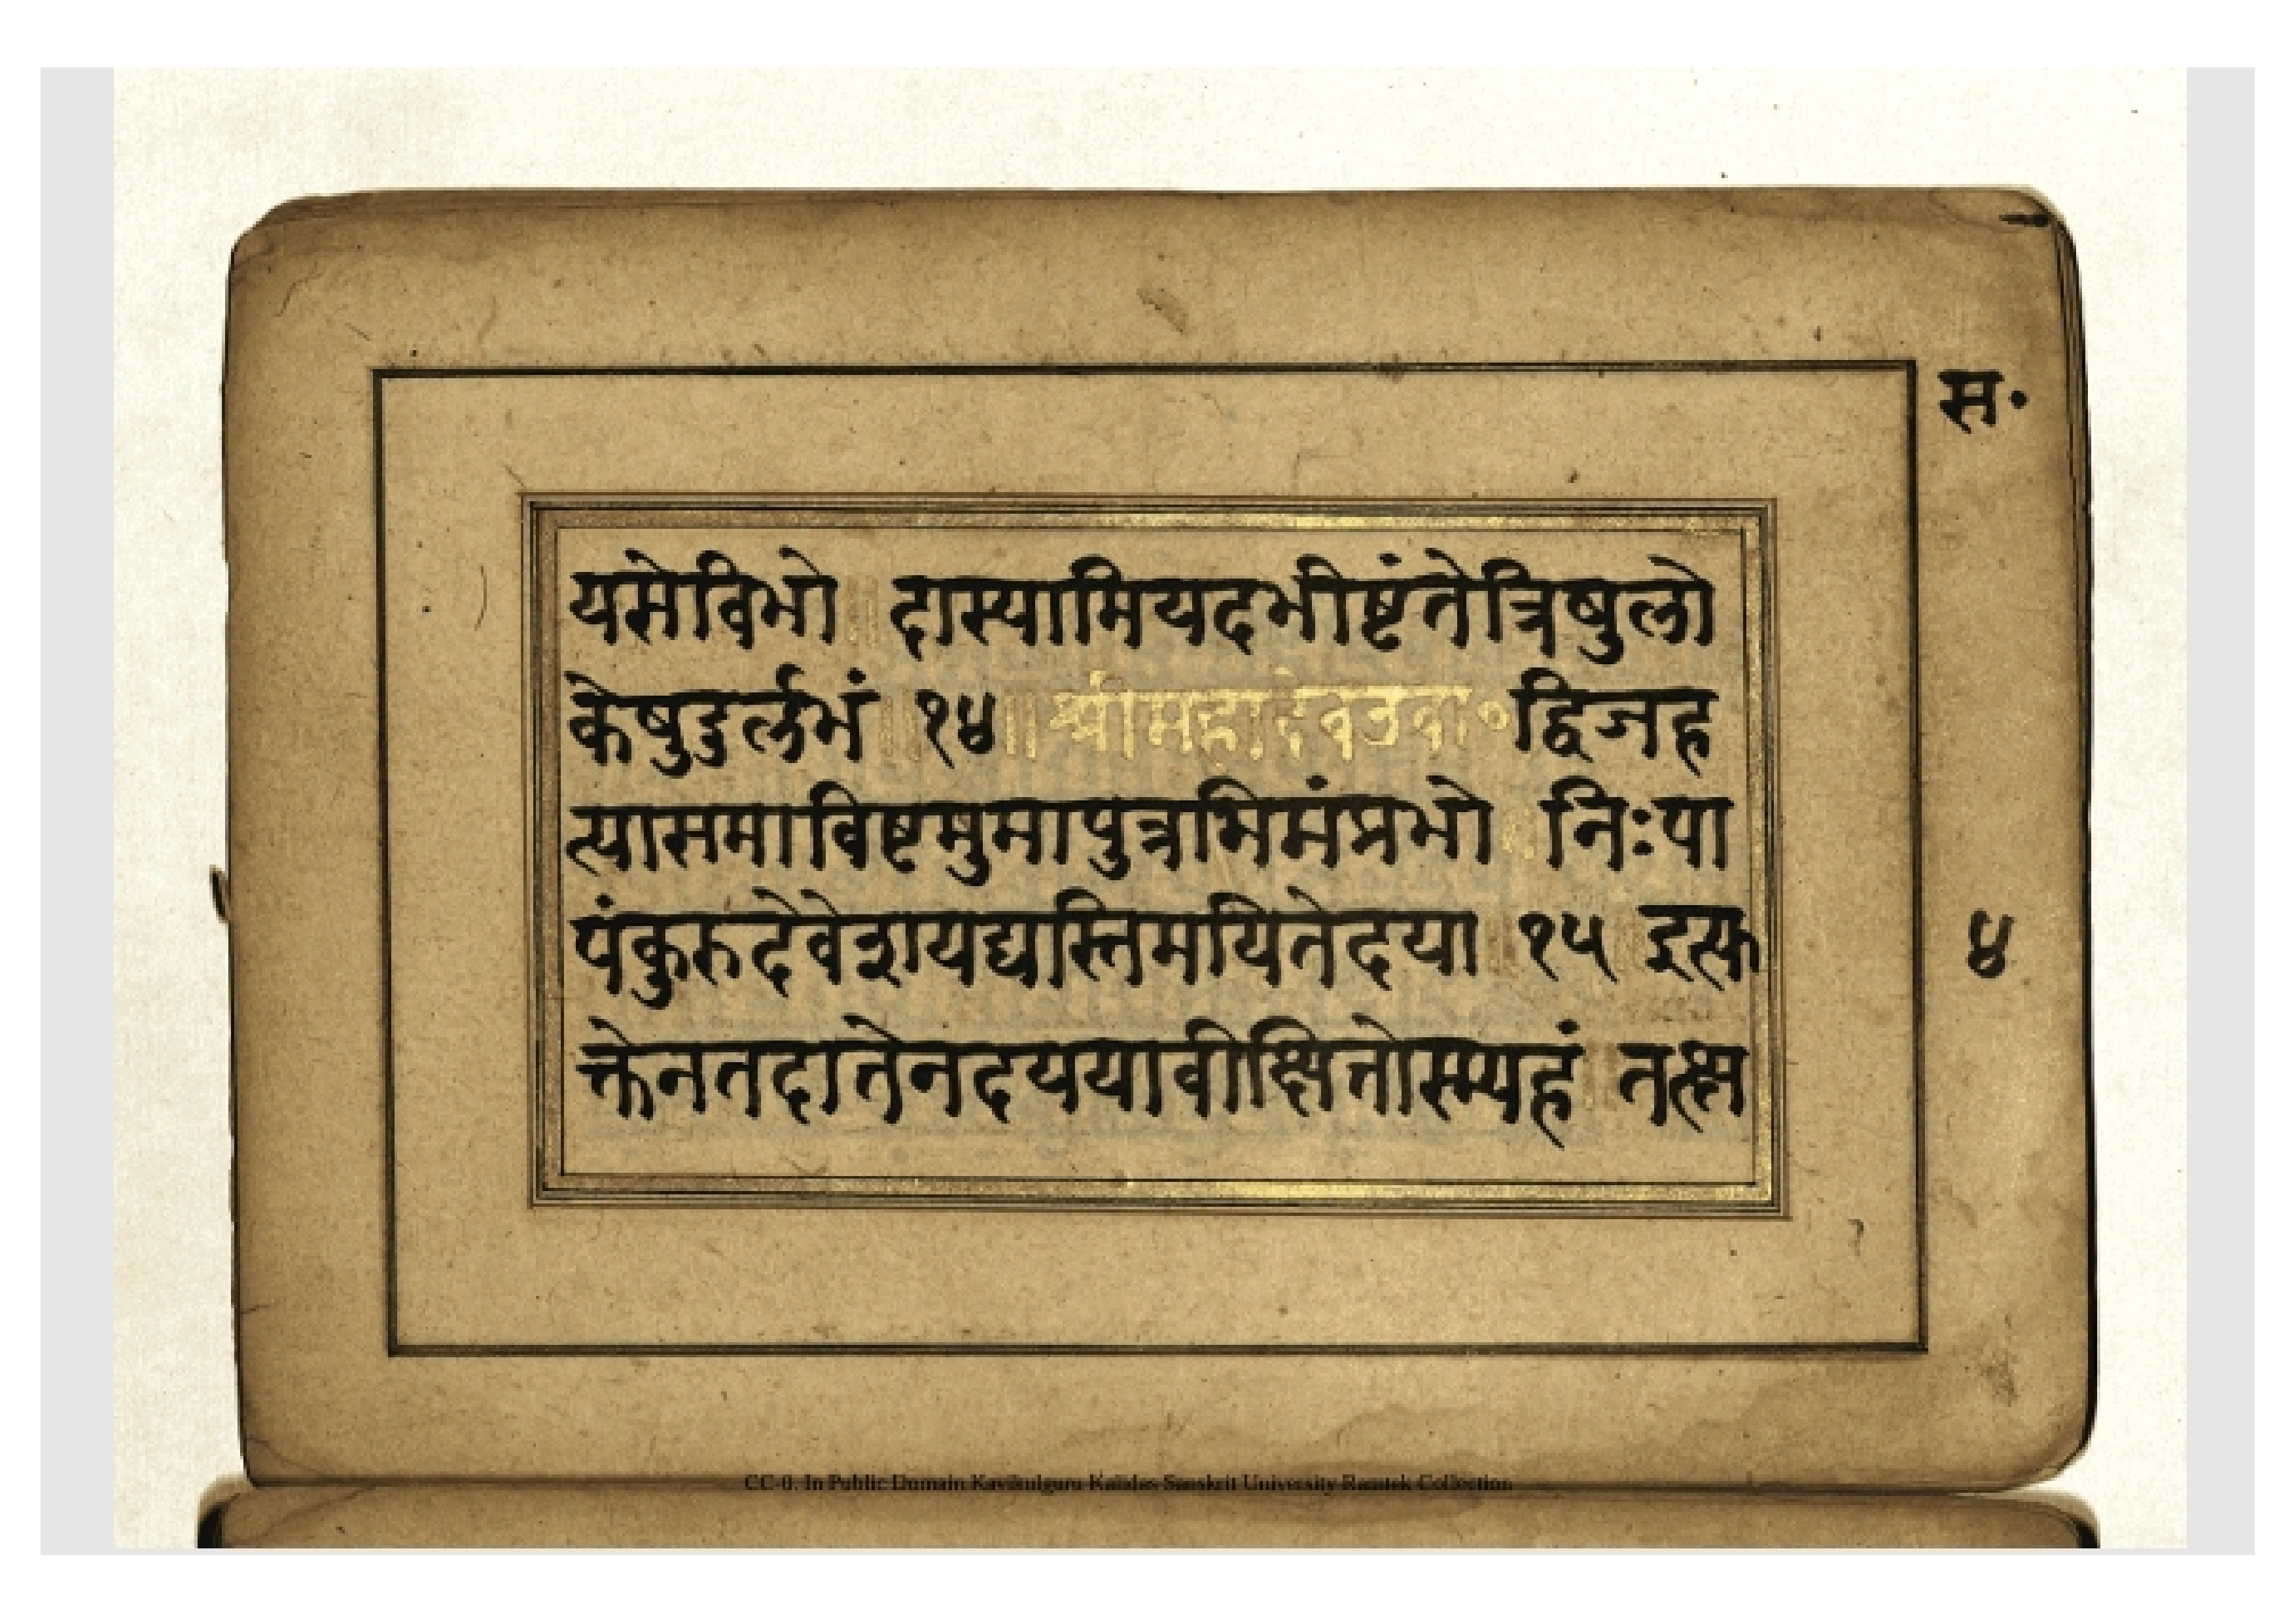 स॰
यसेविभो ॥ दास्यामियदभीष्टंतेत्रिषुलो
केषुदुर्लभं ॥ १४ ॥ श्रीमहादेवउवा॰ द्विजह
त्यासमाविष्टमुमापुत्रमिमंप्रभो ॥ निःपा
पंकुरुदेवेशयद्यस्तिमयितेदया ॥ १५ ॥ इत्यु
४
क्तेनतदातेनदययावीक्षितोस्म्यहं ॥ तत्क्ष
CC-0. In Public Domain Kavikulguru Kalidas Sanskrit University Ramtek Collection